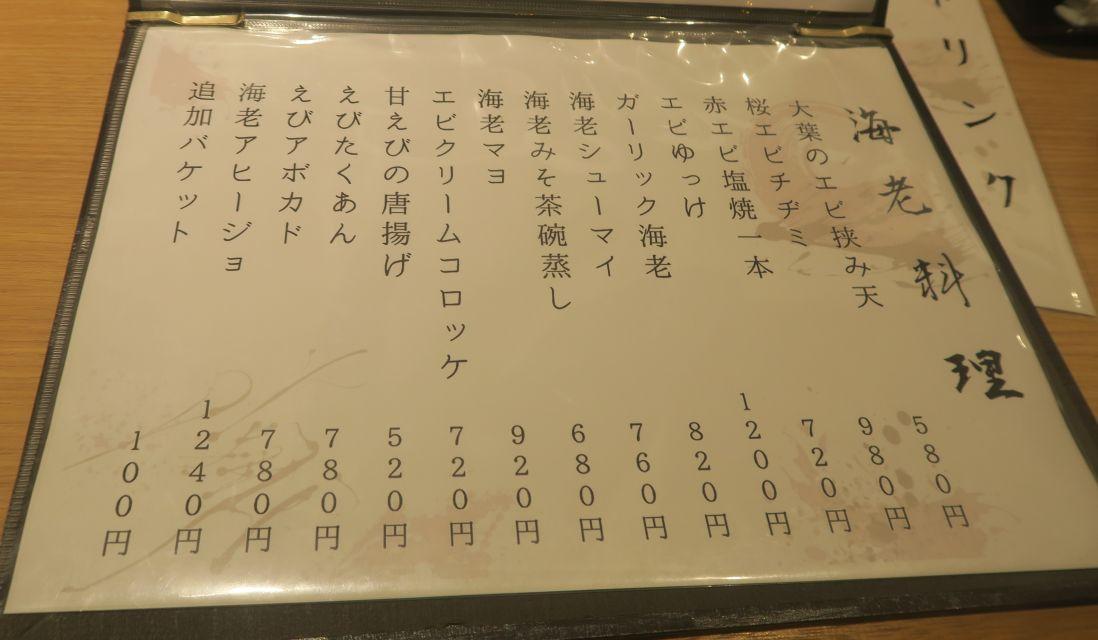 リンク
海老料理
大葉のエビ挟み天 580円
桜エビチヂミ 980円
赤エビ塩焼一本 720円
エビゆっけ 1200円
ガーリック海老 820円
海老シューマイ 760円
海老みそ茶碗蒸し 680円
海老マヨ 920円
エビクリームコロッケ 720円
甘えびの唐揚げ 520円
えびたくあん 780円
えびアボカド 780円
海老アヒージョ 1240円
追加バケット 100円